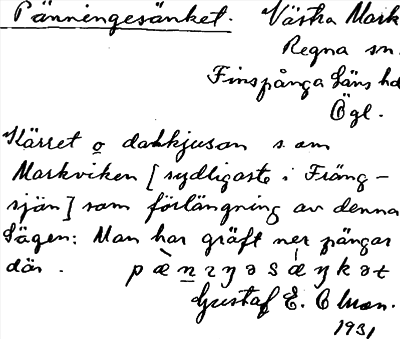 Pänningesänket. Västra Mark
Regna sn.
Finspånga läns hd
Ögl.
Kärret o dahkjusan s om
Markviken [sydligaste i Fräng-
sjön] som förlängning av denna
Sägen: Man har gräft ner pängar
där. pæ̀nɪŋəsǽŋkət
Gustaf E.
1931